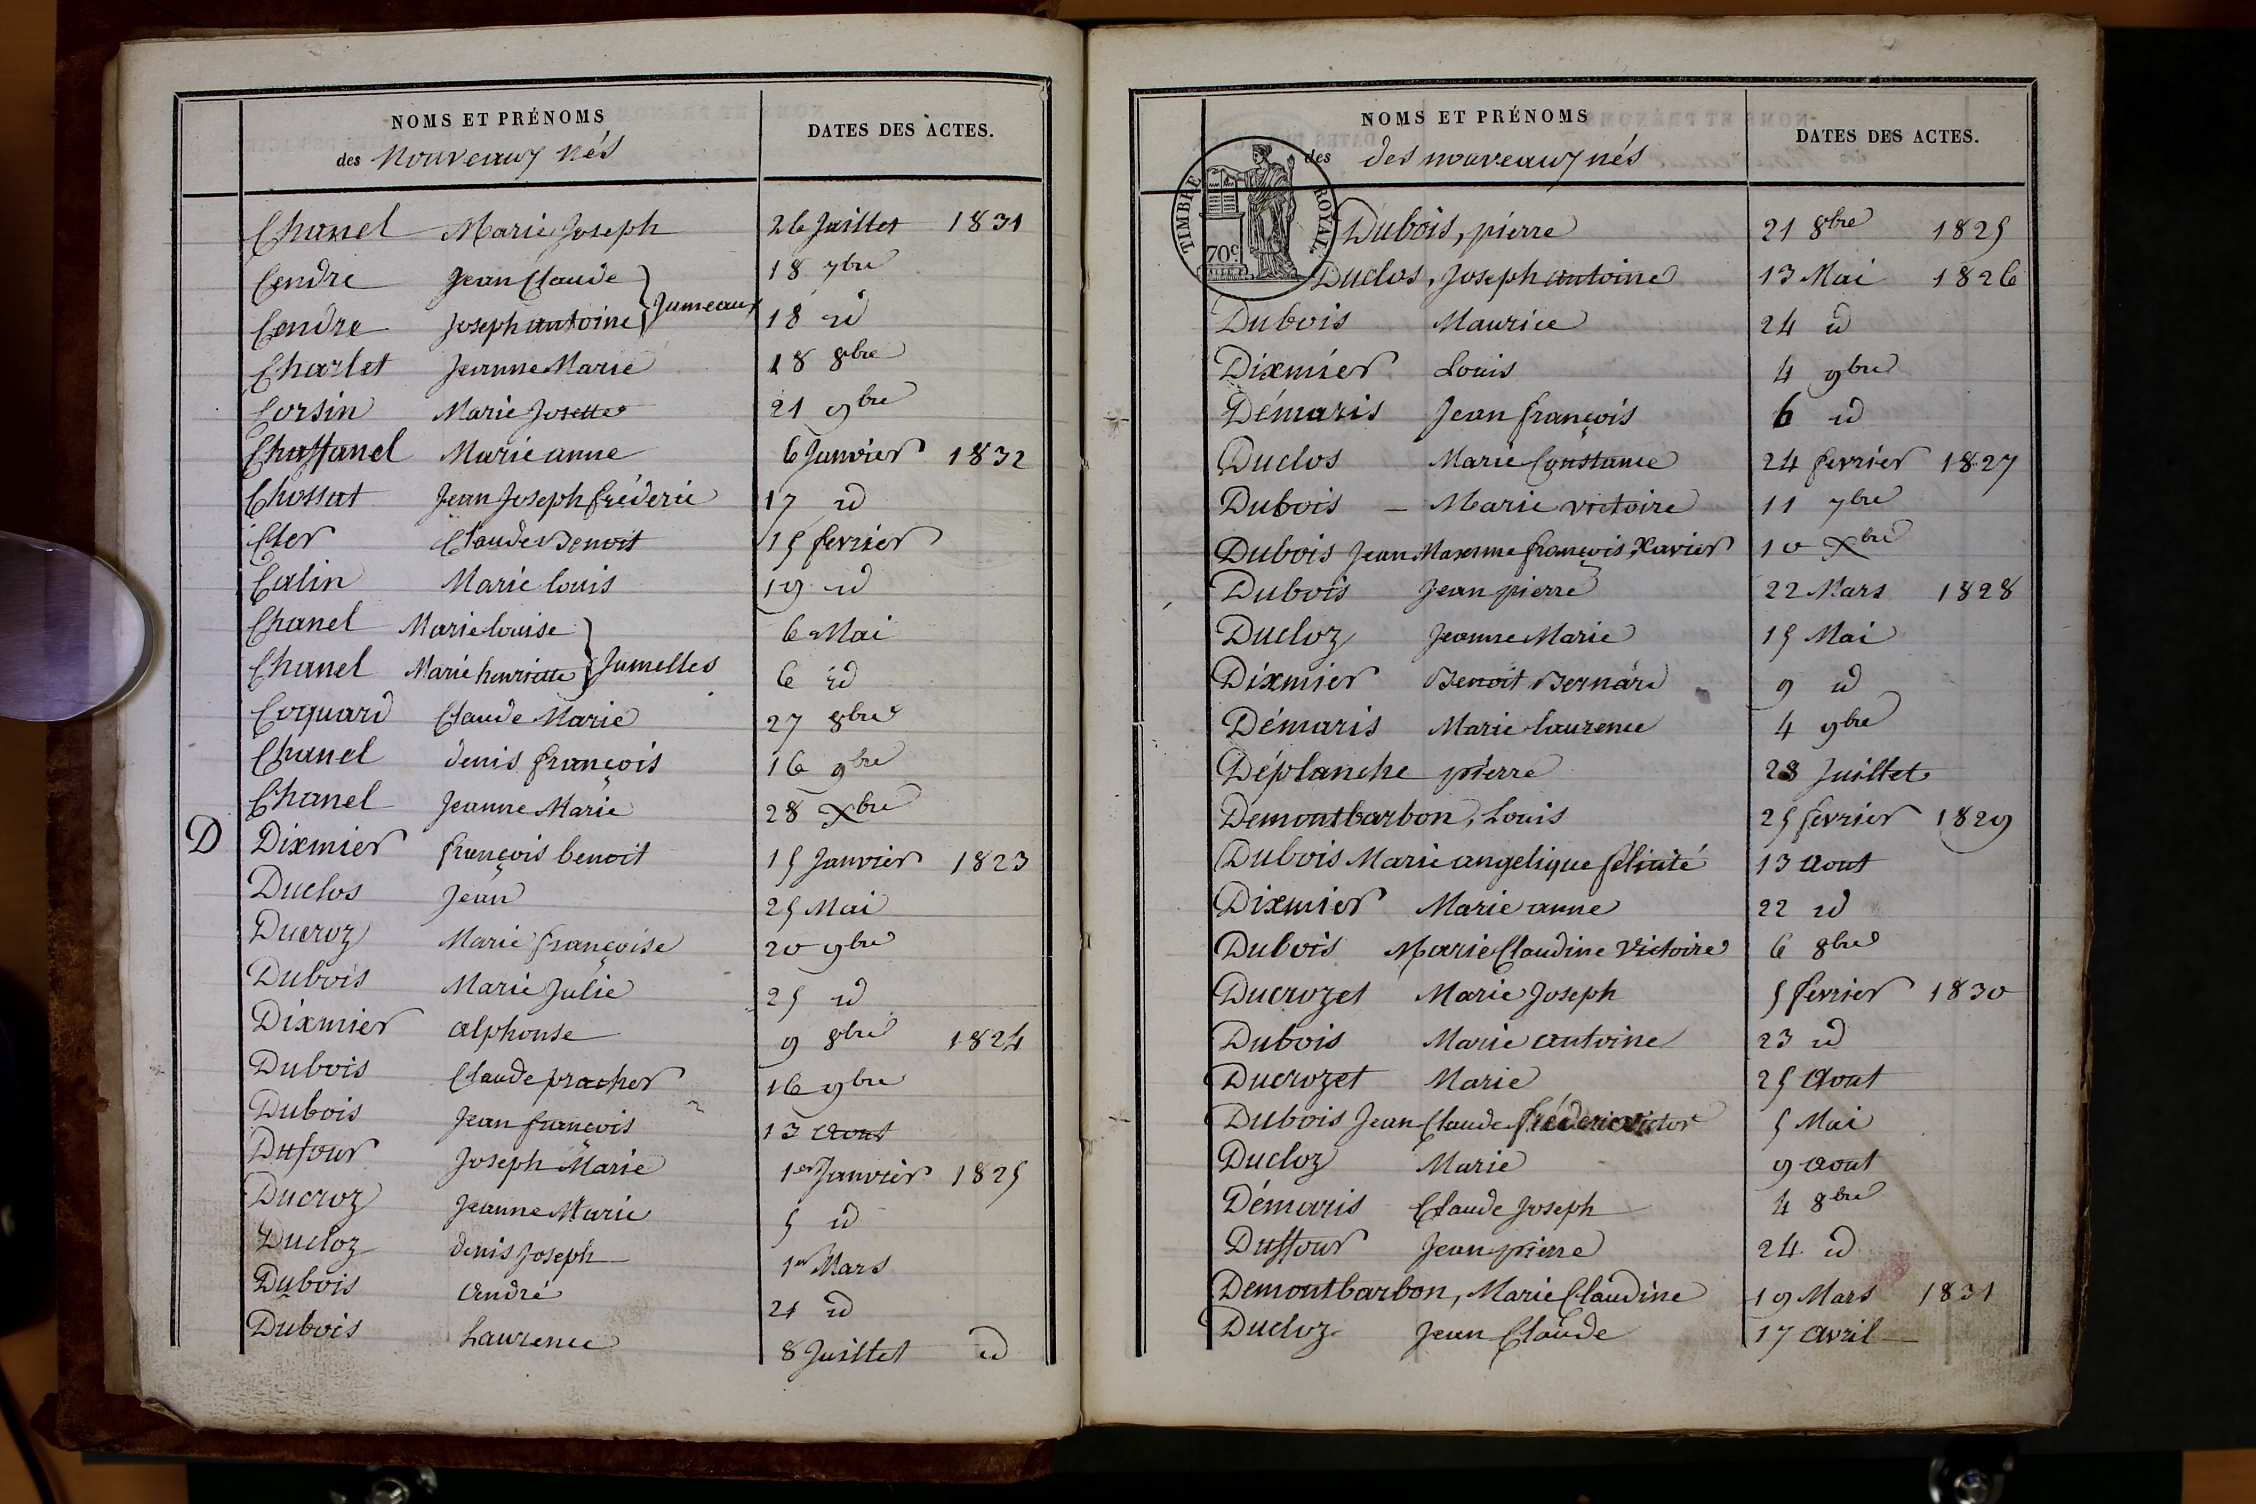 NOMS ET PRÉNOMS
des Nouveaux nés
DATES DES ACTES.
Chanel Marie Joseph 26 Juillet 1831
Cendre Jean Claude 18 7bre
Cendre Joseph antoine Jumeaux 18 id
Charlet Jeanne Marie 18 8bre
Corsin Marie Josette 21 9bre
Chassanel Marie anne 6 Janvier 1832
Chossat Jean Joseph fréderic 17 id
Cler Claude Benoit 15 fevrier
Calin Marie louis 19 id
Chanel Marie louise 6 Mai
Chanel Marie henriette Jumelles 6 id
Coquard Claude Marie 27 8bre
Chanel denis françois 16 9bre
Chanel Jeanne Marie 28 Xbre
D Dixmier françois benoit 15 Janvier 1823
Duclos Jean 25 Mai
Ducroz Marie françoise 20 9bre
Dubois Marie Julie 25 id
Dixmier alphonse 9 8bre 1824
Dubois Claude pracher 16 9bre
Dubois Jean françois 13 Aout
Dufour Joseph Marie 1er Janvier 1825
Ducroz Jeanne Marie 5 id
Ducloz denis Joseph 1er Mars
Dubois André 21 id
Dubois Laurence 8 Juillet id
NOMS ET PRÉNOMS
des des nouveaux nés
DATES DES ACTES.
TIMBRE ROYAL
70c
Dubois, pierre 21 8bre 1825
Duclos, Joseph antoine 13 Mai 1826
Dubois Maurice 24 id
Dixmier Louis 4 9bre
Démaris Jean françois 6 id
Duclos Marie Constance 24 fevrier 1827
Dubois - Marie victoire 11 7bre
Dubois Jean Maxenne françois Xavier 10 Xbre
Dubois Jean pierre 22 Mars 1828
Ducloz Jeanne Marie 15 Mai
Dixmier Benoit Bernard 9 id
Démaris Marie laurence 4 9bre
Déplanche pierre 28 Juillet
Demontbarbon, Louis 25 fevrier 1829
Dubois Marie angelique félicité 13 Aout
Dixmier Marie anne 22 id
Dubois Marie Claudine Victoire 6 8bre
Ducrozet Marie Joseph 5 février 1830
Dubois Marie antoine 23 id
Ducrozet Marie 25 Aout
Dubois Jean Claude fréderic victor 5 Mai
Ducloz Marie 9 Aout
Démaris Claude Joseph 4 8bre
Duffour Jean pierre 24 id
Demontbarbon, Marie Claudine 19 Mars 1831
Ducloz Jean Claude 17 Avril